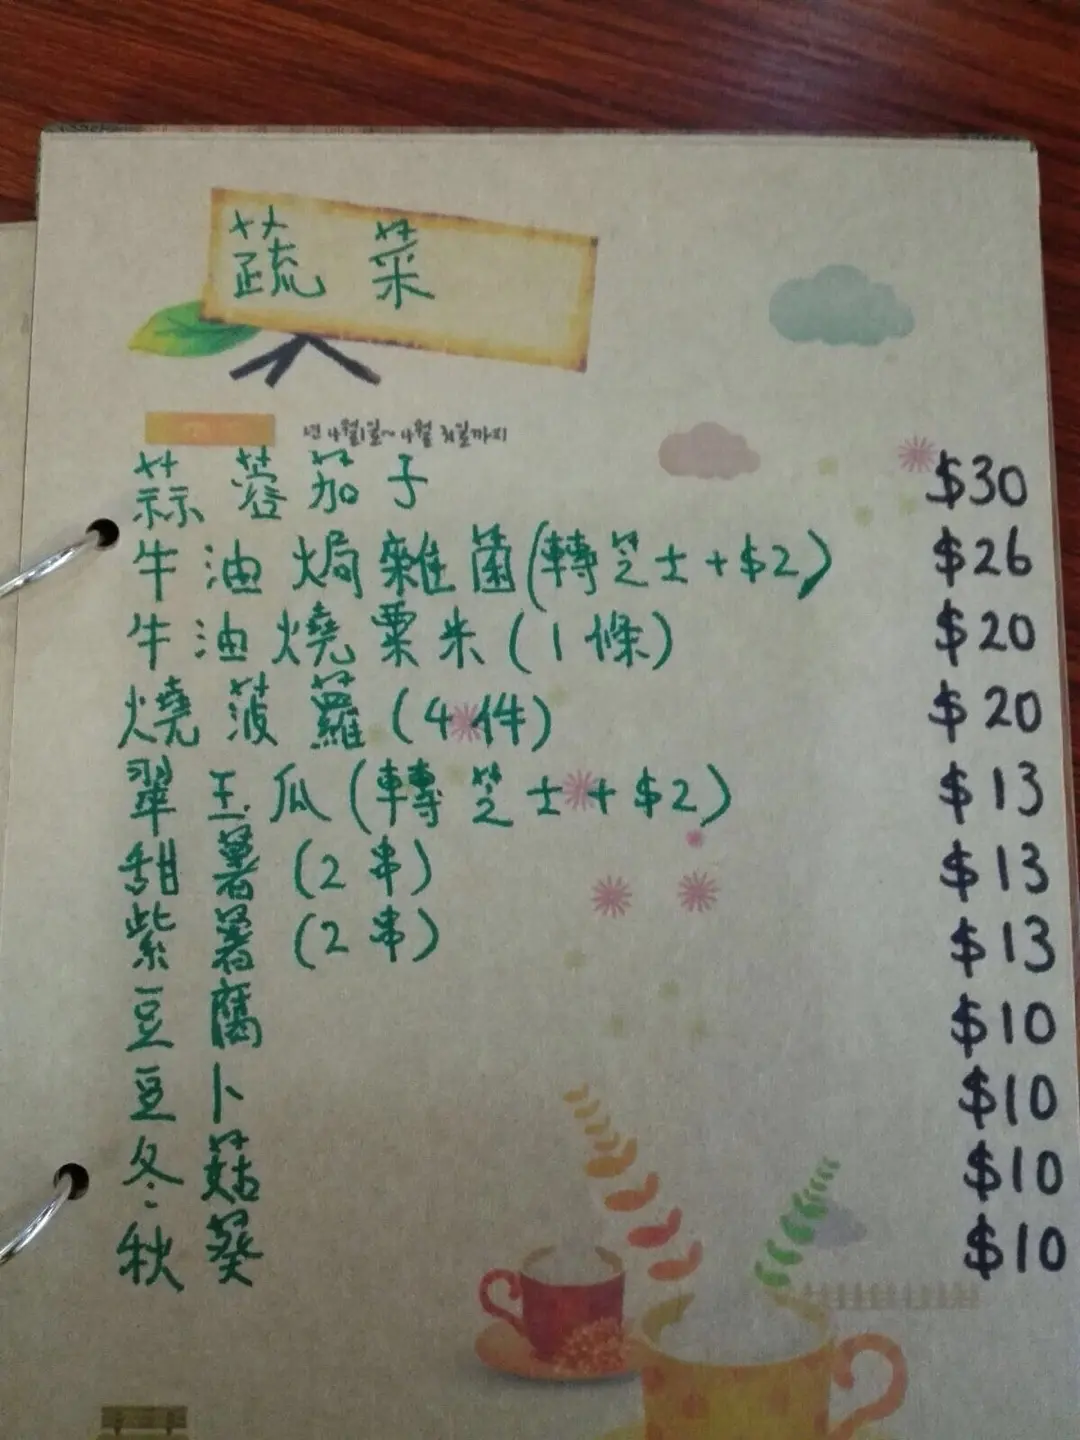 蔬菜
년 4월1일~4월 31일까지
蒜蓉茄子 $30
牛油焗雜菌(轉芝士+$2) $26
牛油燒粟米(1條) $20
燒菠蘿(4件) $20
翠玉瓜(轉芝士+$2) $13
甜薯(2串) $13
紫薯(2串) $13
豆腐 $10
豆卜 $10
冬菇 $10
秋葵 $10